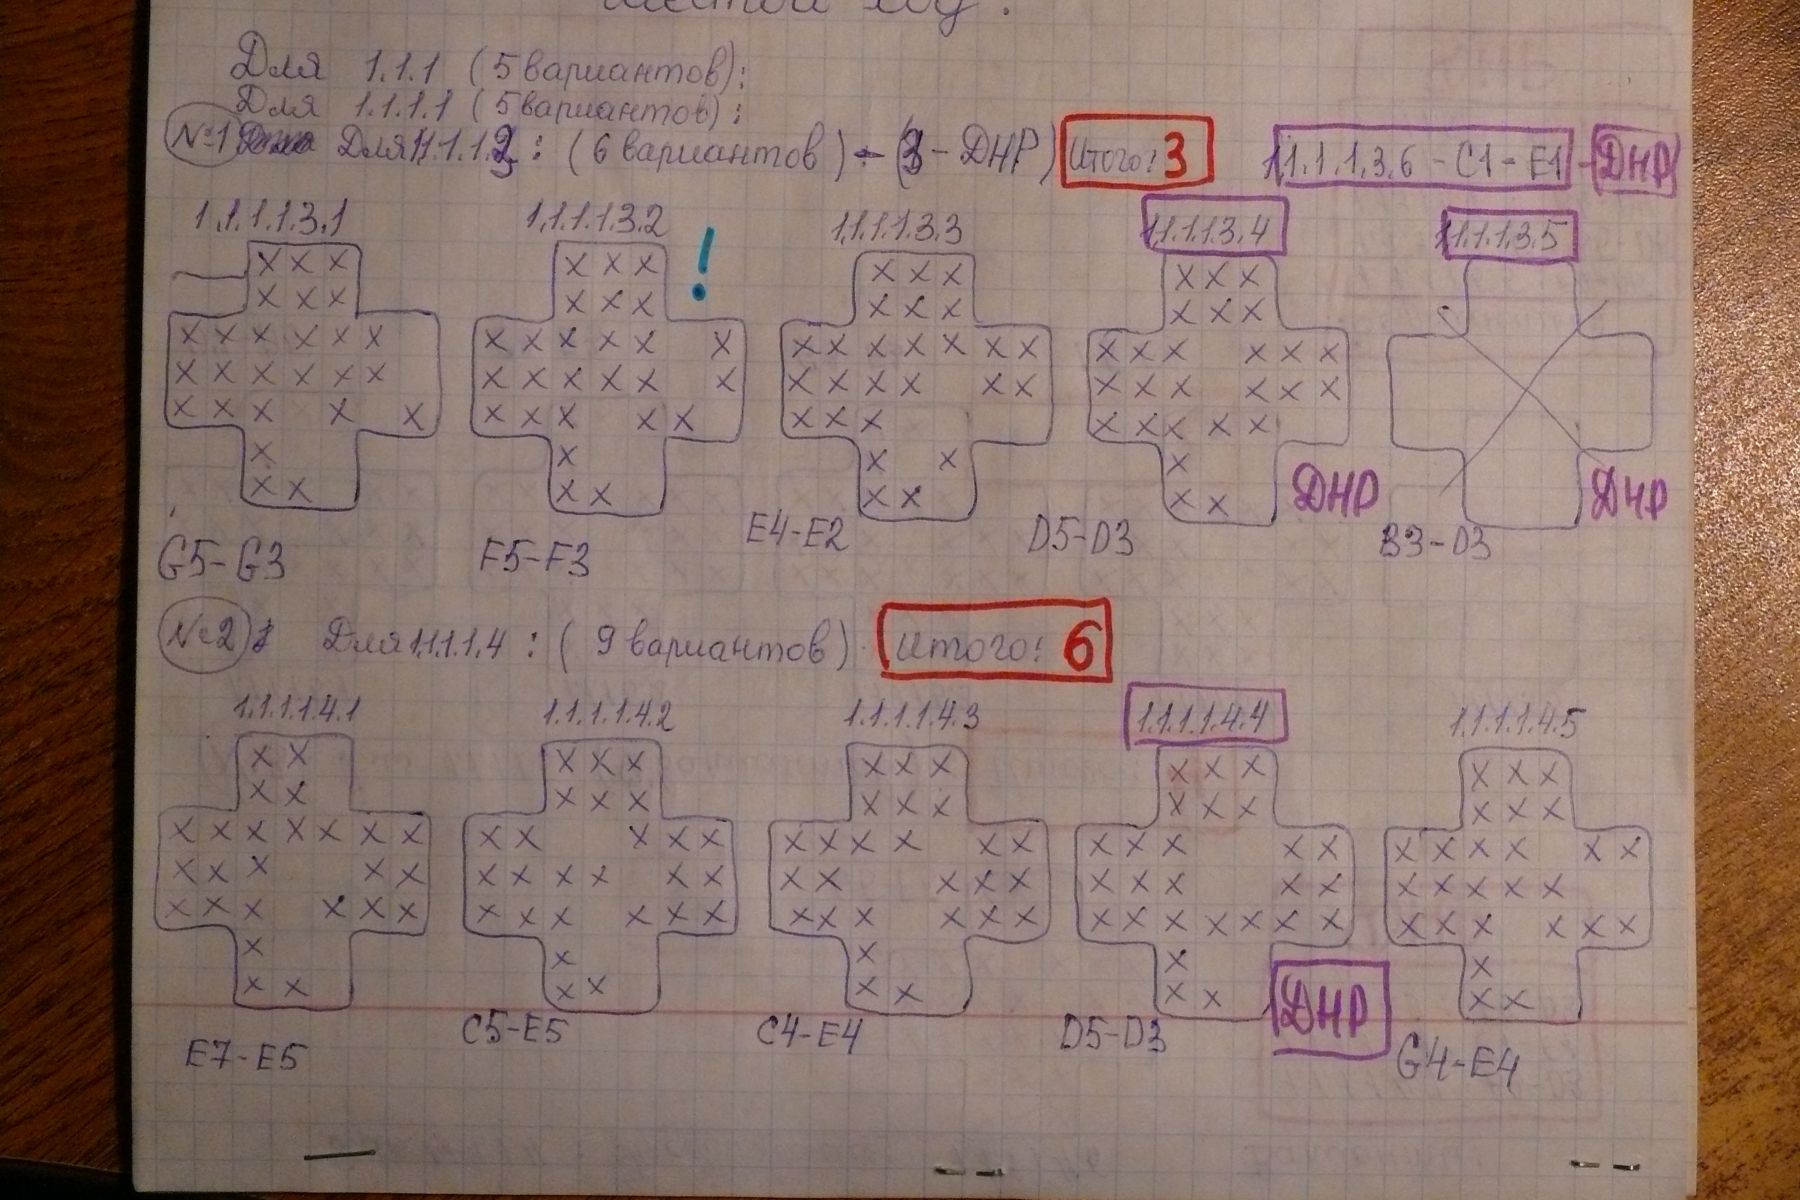 Шестой ход:
Для 1.1.1 (5 вариантов):
Для 1.1.1.1 (5 вариантов):
№1 Для 1.1.1.1.3: (6 вариантов) - (3 - ДНР) Итого: 3 1.1.1.1.3.6 - C1 - E1 - ДНР
1.1.1.1.3.1 1.1.1.1.3.2 ! 1.1.1.1.3.3 1.1.1.1.3.4 1.1.1.1.3.5
ДНР ДНР
G5-G3 F5-F3 E4-E2 D5-D3 B3-D3
№2 Для 1.1.1.1.4: (9 вариантов) Итого: 6
1.1.1.1.4.1 1.1.1.1.4.2 1.1.1.1.4.3 1.1.1.1.4.4 1.1.1.1.4.5
ДНР
E7-E5 C5-E5 C4-E4 D5-D3 G4-E4